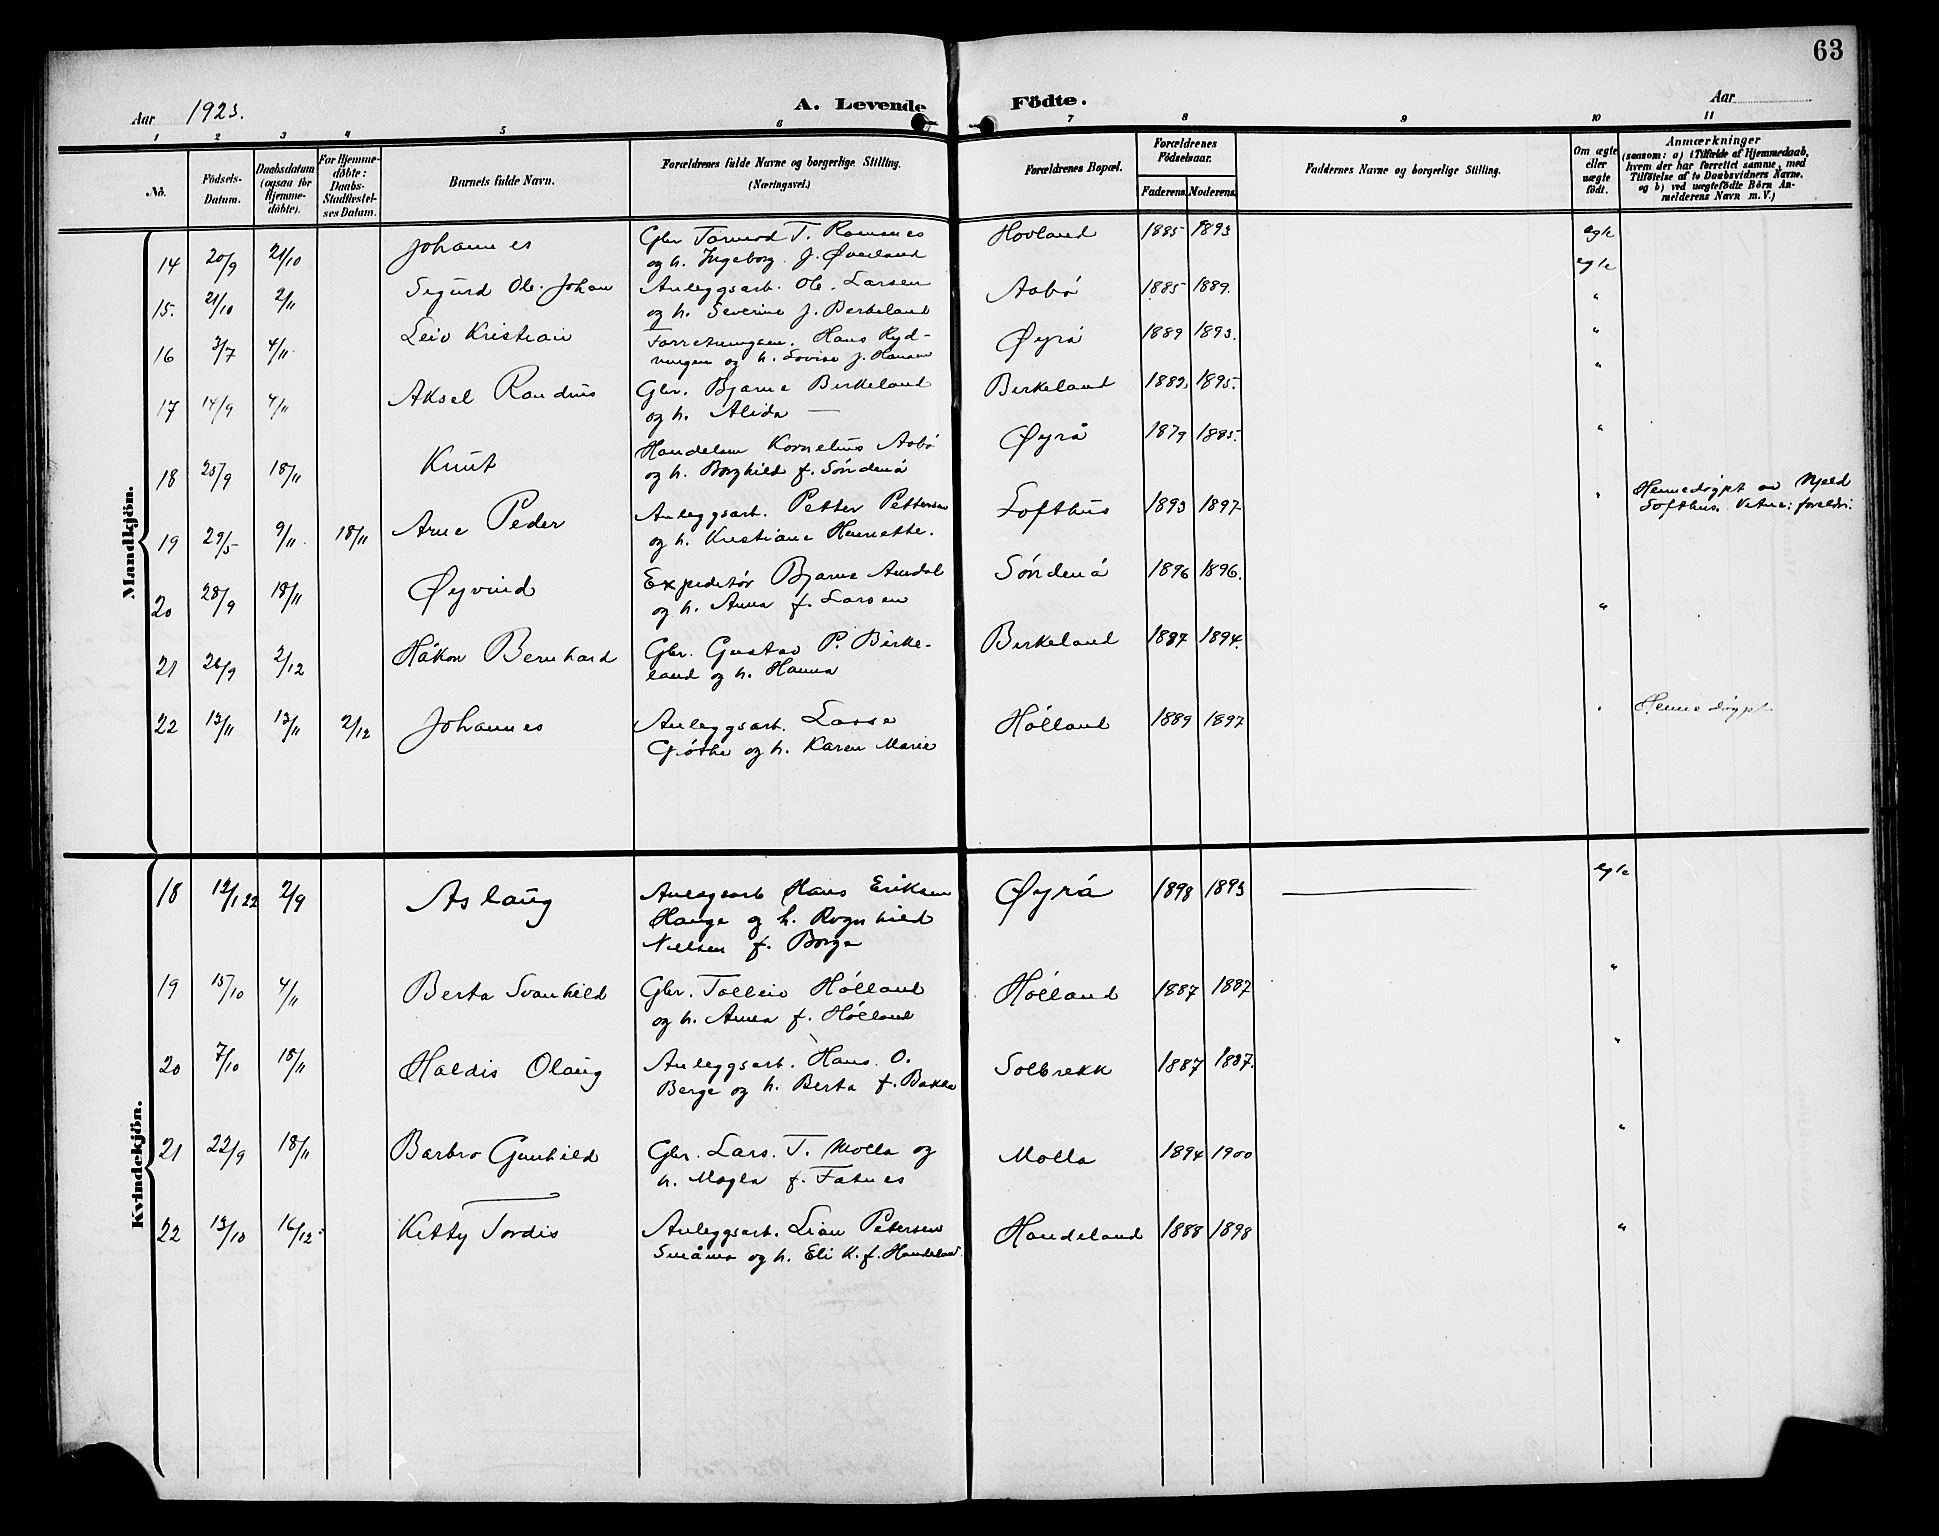 63
Aar 1923.
A. Levende Födte.
Aar
1 2 3 4 5 6 7 8 9 10 11
No.
Födsels-Datum.
Daabsdatum (ogsaa for Hjemme-döbte).
For Hjemme-döbte: Daabs-Stadfæstel-ses Datum.
Barnets fulde Navn.
Forældrenes fulde Navne og borgerlige Stilling. (Næringsvei.)
Forældrenes Bopæl.
Forældrenes Födselsaar.
Faderens. Moderens.
Faddernes Navne og borgerlige Stilling.
Om ægte eller uægte födt.
Anmærkninger
(saasom: a) i Tilfælde af Hjemmedaab, hvem der har forrettet samme, med Tilföielse af to Daabsvidners Navne, og b) ved uægtefödte Börn Anmelderens Navn m. V.)
Mandkjön.
14 20/9 21/10 Johannes Gbr Tormod T. Ramnes Hovland 1885 1893 egte
og h. Ingeborg f. Øverland egte
15. 21/10 2/11 Sigurd Ole Johan Anleggsarb. Ole Larsen Aabø 1885 1889. "
og h. Severine f. Birkeland
16 3/7 4/11 Leiv Kristian Forretningsm. Hans Ryd- Øyrå 1889 1893. "
ningen og h. Lovise f. Hansen
17 14/9 4/11 Aksel Randius Gbr. Bjarne Birkeland Birkeland 1889 1895. "
og h. Alida —
18 25/9 18/11 Knut Handelsm Kornelius Aabø Øyrå 1879 1885. "
og h. Borghild f. Søndenå
19 29/5 9/11 18/11 Arne Peder Anleggsarb. Petter Pettersen Lofthus 1893 1897 " Hemedøypt av Njeld
og h. Kristiane Henriette. Lofthus. Vitne: foreldri.
20 28/9 18/11 Øyvind Expeditør Bjarne Amdal Søndenå 1896 1896.
og h. Anna f. Larsen "
21 26/9 2/12 Håkon Bernhard Gbr. Gustav P. Birke- Birkeland 1887 1894.
land og h. Hanna
22 13/11 13/11 2/12 Johannes Anleggsarb. Lasse Hólland 1889 1897 " Hemedøypt
Gjöthe og h. Karen Marie
Kvindekjön.
18 12/1 22 2/9 Aslaug Anlegsarb Hans Eriksen Øyrå 1898 1893 — egte
Hauge og h. Rognhild
Nielsen f. Borge
19 15/10 4/11 Berta Svanhild Gbr. Tolleiv Hólland Hólland 1887 1887 "
og h. Anna f. Hólland
20 7/10 18/11 Haldis Olaug Anleggsarb. Hans O. Solbrekk 1887 1887. "
Berge og h. Berta f. Bakka
21 22/9 18/11 Barbro Gunhild Gbr. Lars T. Molla og Molla 1894 1900 "
h. Magla f. Fatnes
22 13/10 16/12 Kitty Tordis Anleggsarb. Lian Petersen Handeland 1888 1898 "
Småmo og h. Eli K. f. Handeland